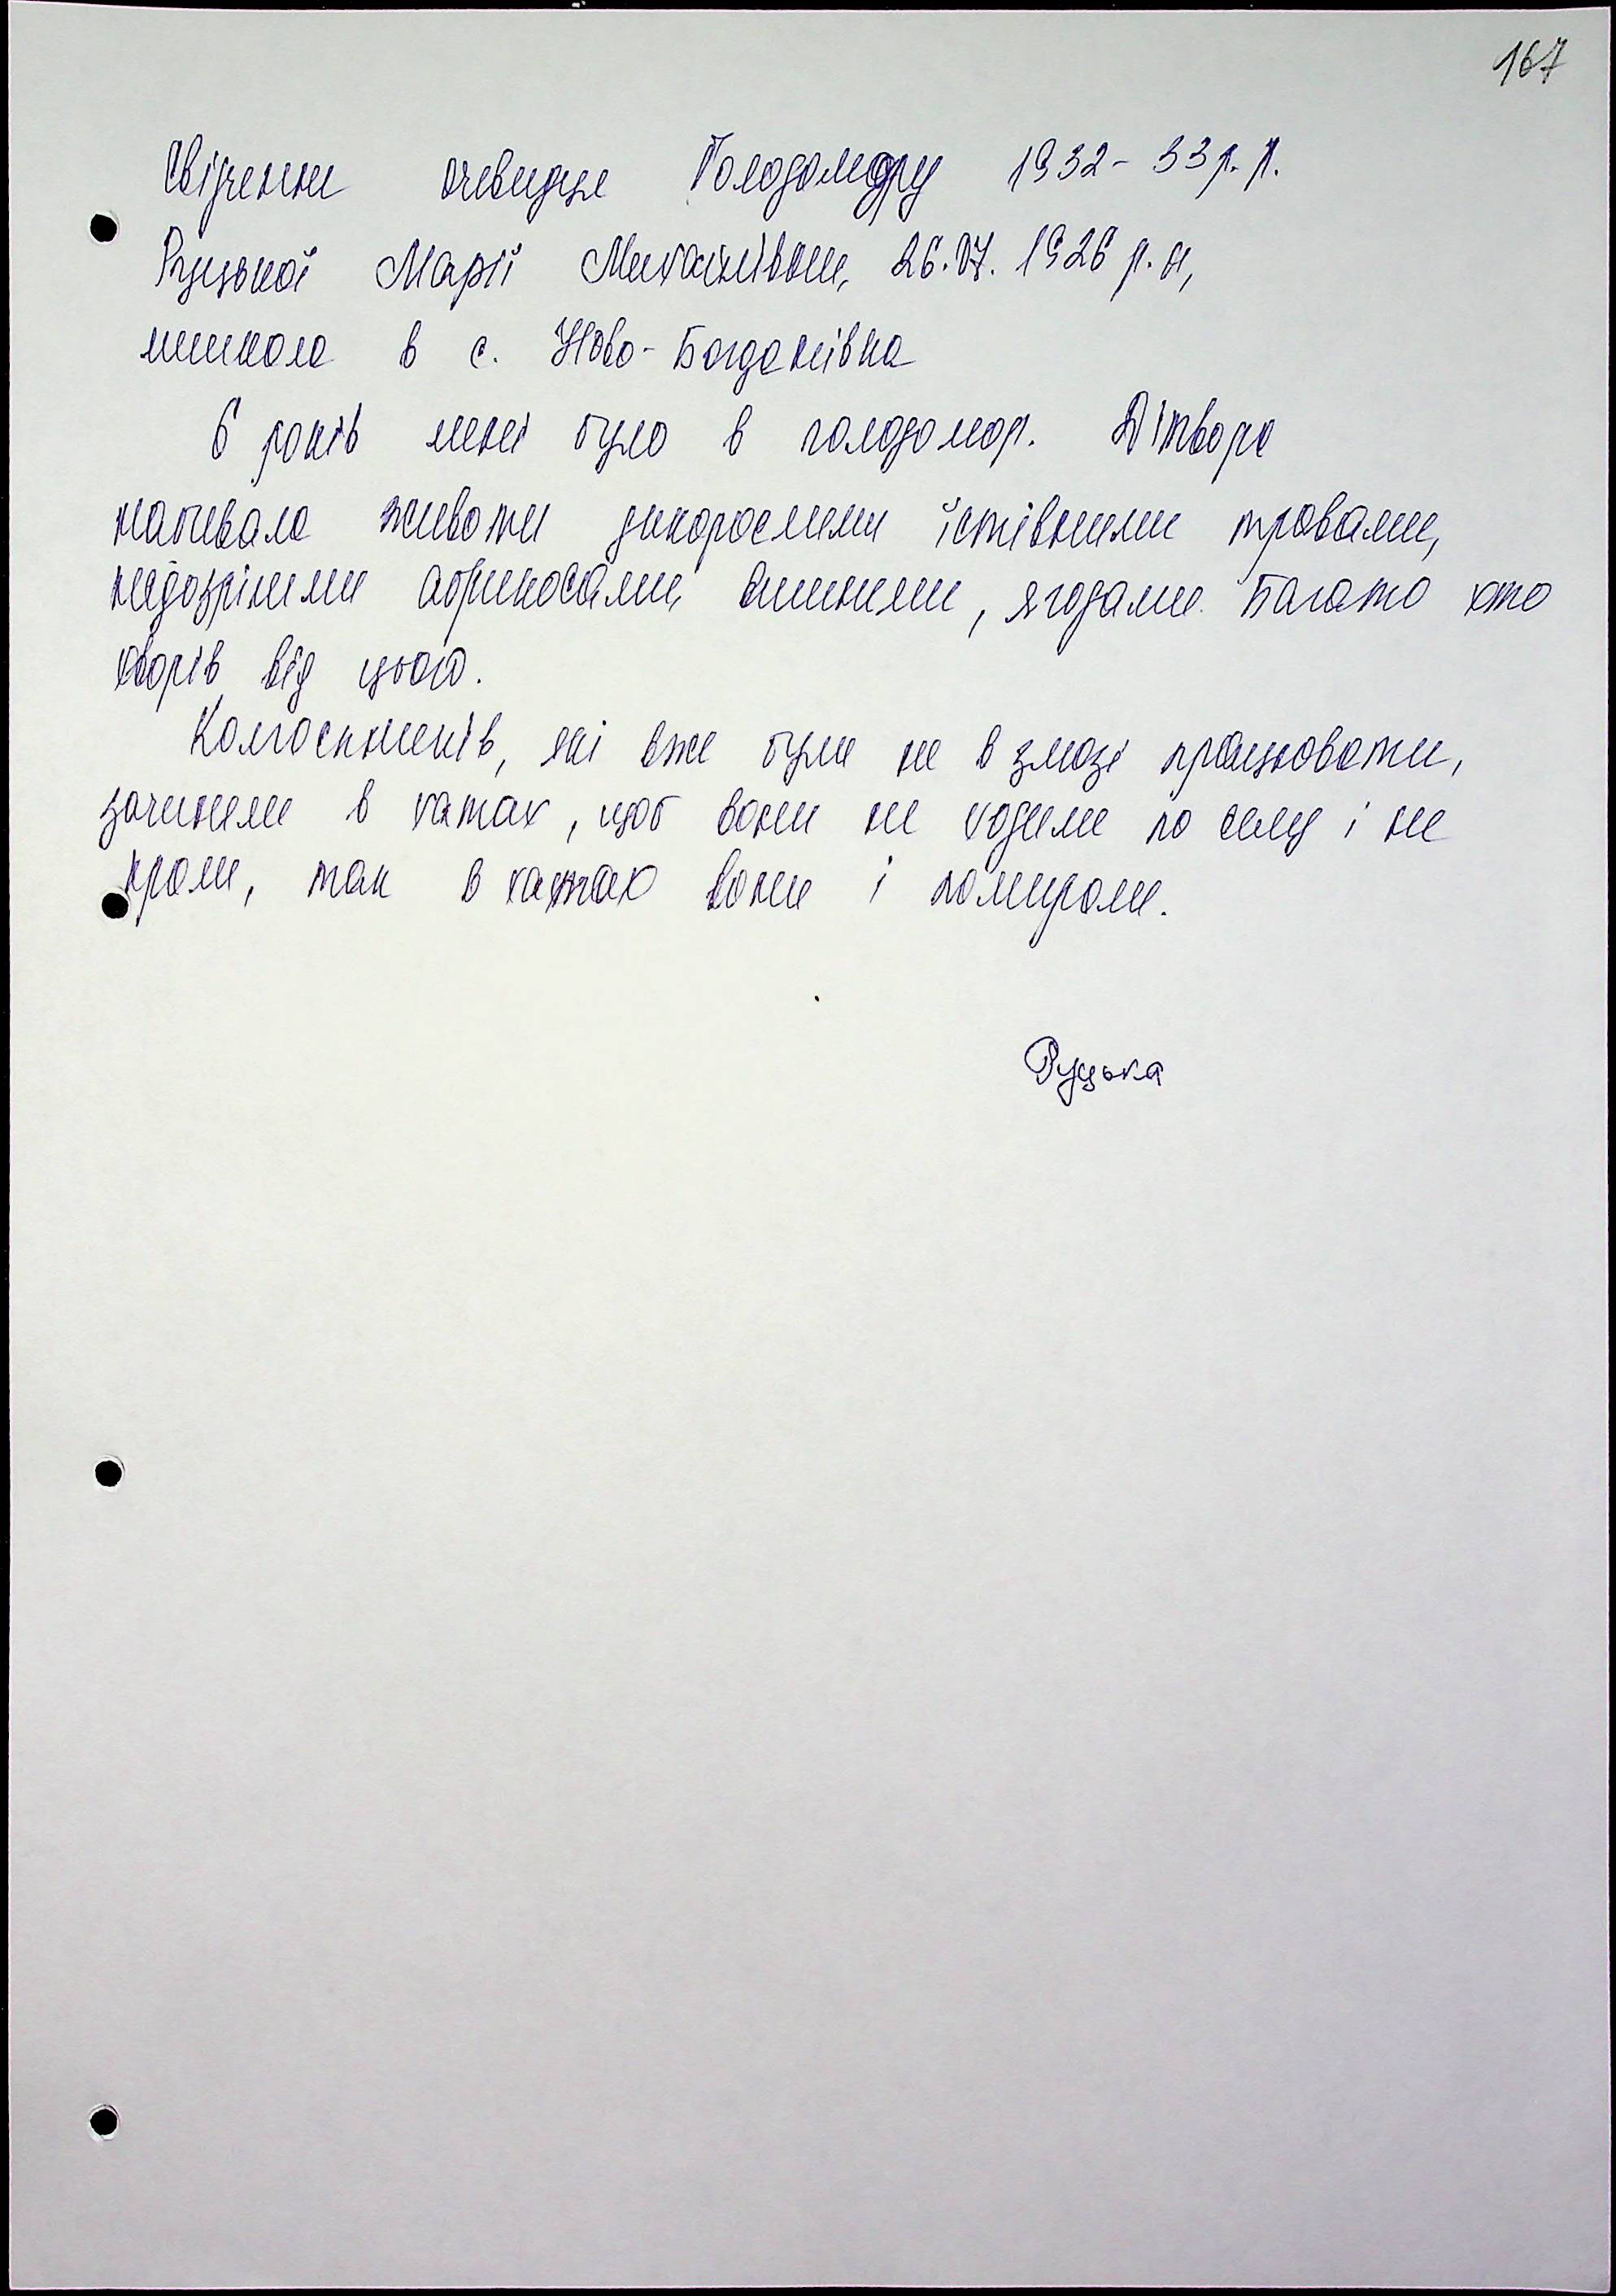 167
Свідчення очевидця Голодомору 1932-33 р.р.
Руцької Марії Михайлівни, 26.07.1926 р.н,
мешкала в с. Ново-Богданівка
6 років мені було в голодомор. Дітвора
набивала животи дикорослими їстівними травами,
недозрілими абрикосами, вишнями, ягодами. Багато хто
хворів від цього.
Колгоспників, які вже були не в змозі працювати,
зачинили в хатах, щоб вони не ходили по селу і не
крали, так в хатах вони і помирали.
Руцька